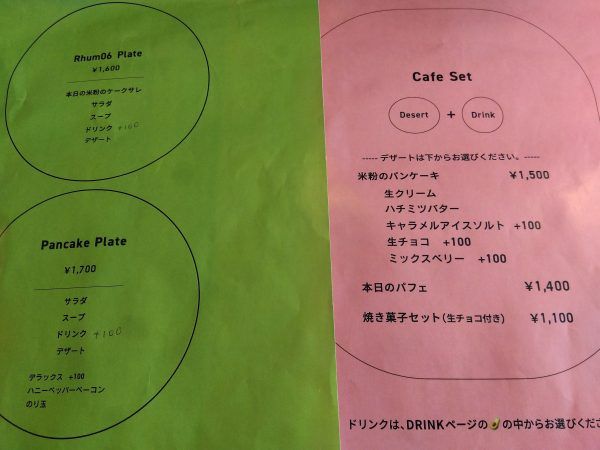 Rhum06 Plate
¥1,600
本日の米粉のケークサレ
サラダ
スープ
ドリンク +100
デザート
Pancake Plate
¥1,700
サラダ
スープ
ドリンク +100
デザート
デラックス +100
ハニーペッパーベーコン
のり玉
Cafe Set
Desert + Drink
----- デザートは下からお選びください。-----
米粉のパンケーキ ¥1,500
生クリーム
ハチミツバター
キャラメルアイスソルト +100
生チョコ +100
ミックスベリー +100
本日のパフェ ¥1,400
焼き菓子セット(生チョコ付き) ¥1,100
ドリンクは、DRINKページの🥑の中からお選びくださ